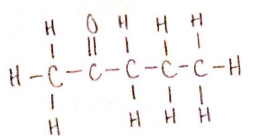 H O H H H
H-C-C-C-C-C-H
H H H H